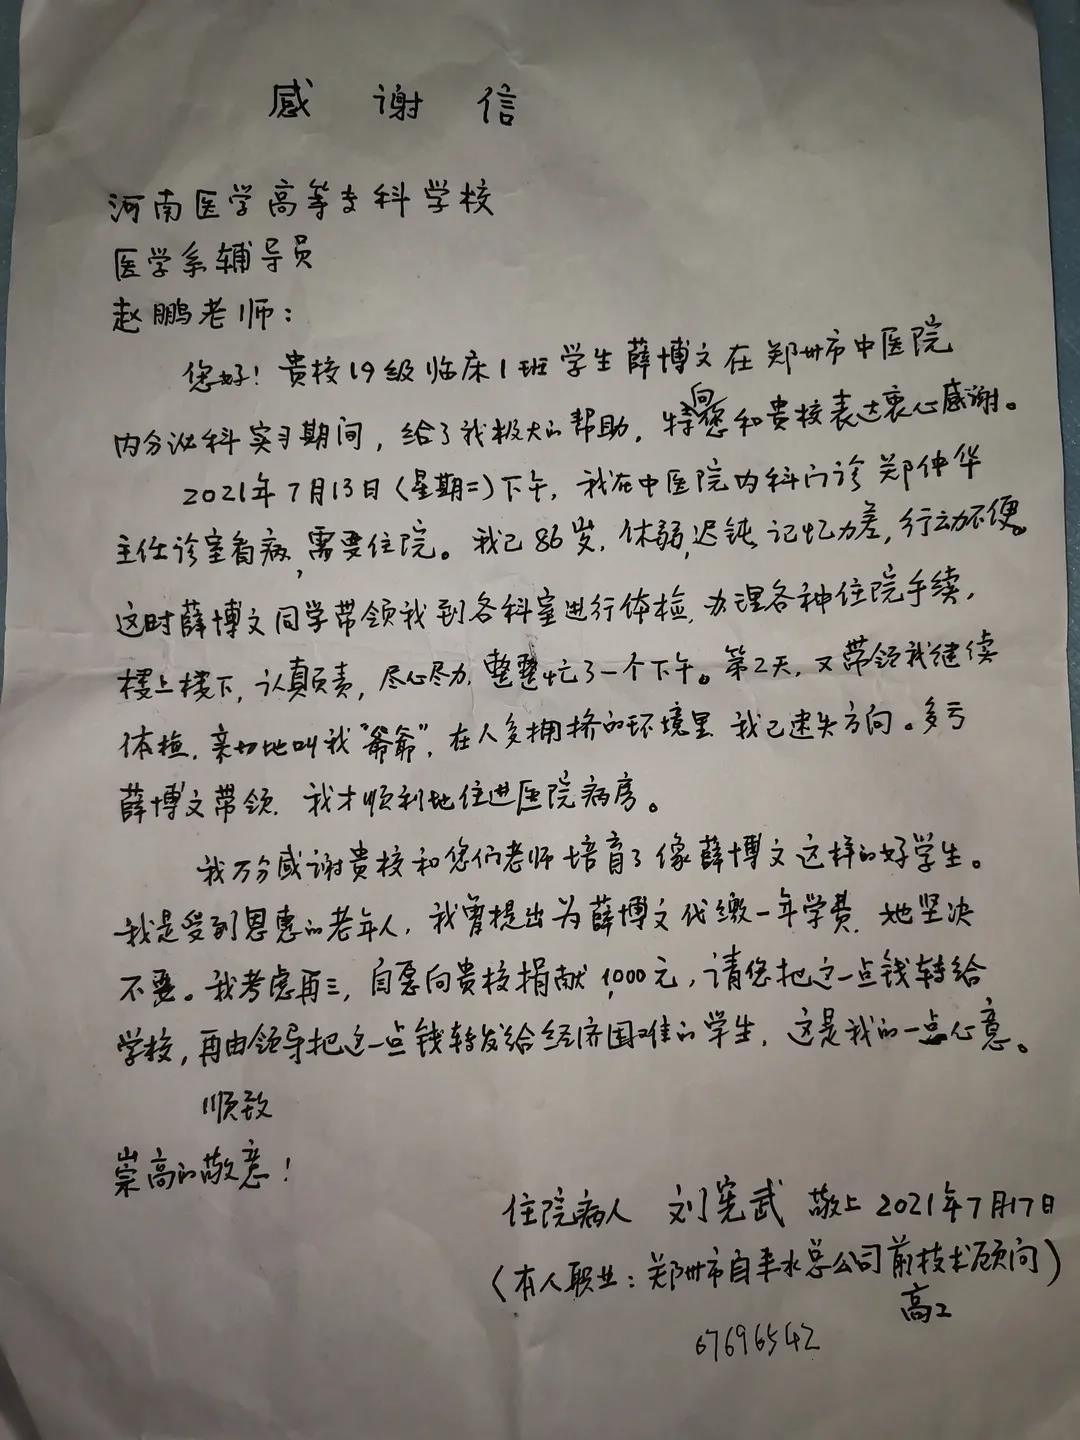 感谢信
河南医学高等专科学校
医学系辅导员
赵鹏老师：
您好！贵校19级临床1班学生薛博文在郑州市中医院
内分泌科实习期间，给了我极大的帮助，特向您和贵校表达衷心感谢。
2021年7月13日（星期二）下午，我在中医院内科门诊郑仲华
主任诊室看病，需要住院。我已86岁，体弱，迟钝，记忆力差，行动不便。
这时薛博文同学带领我到各科室进行体检，办理各种住院手续，
楼上楼下，认真负责，尽心尽力，整整忙了一个下午。第2天，又带领我继续
体检，亲切地叫我“爷爷”，在人多拥挤的环境里我已迷失方向。多亏
薛博文带领，我才顺利地住进医院病房。
我万分感谢贵校和您们老师培育了像薛博文这样的好学生。
我是受到恩惠的老年人，我曾提出为薛博文代缴一年学费，她坚决
不要。我考虑再三，自愿向贵校捐献1,000元，请您把这一点钱转给
学校，再由领导把这一点钱转发给经济困难的学生，这是我的一点心意。
顺致
崇高的敬意！
住院病人 刘宪武 敬上 2021年7月17日
（本人职业：郑州市自来水总公司前技术顾问）
高工
67696542